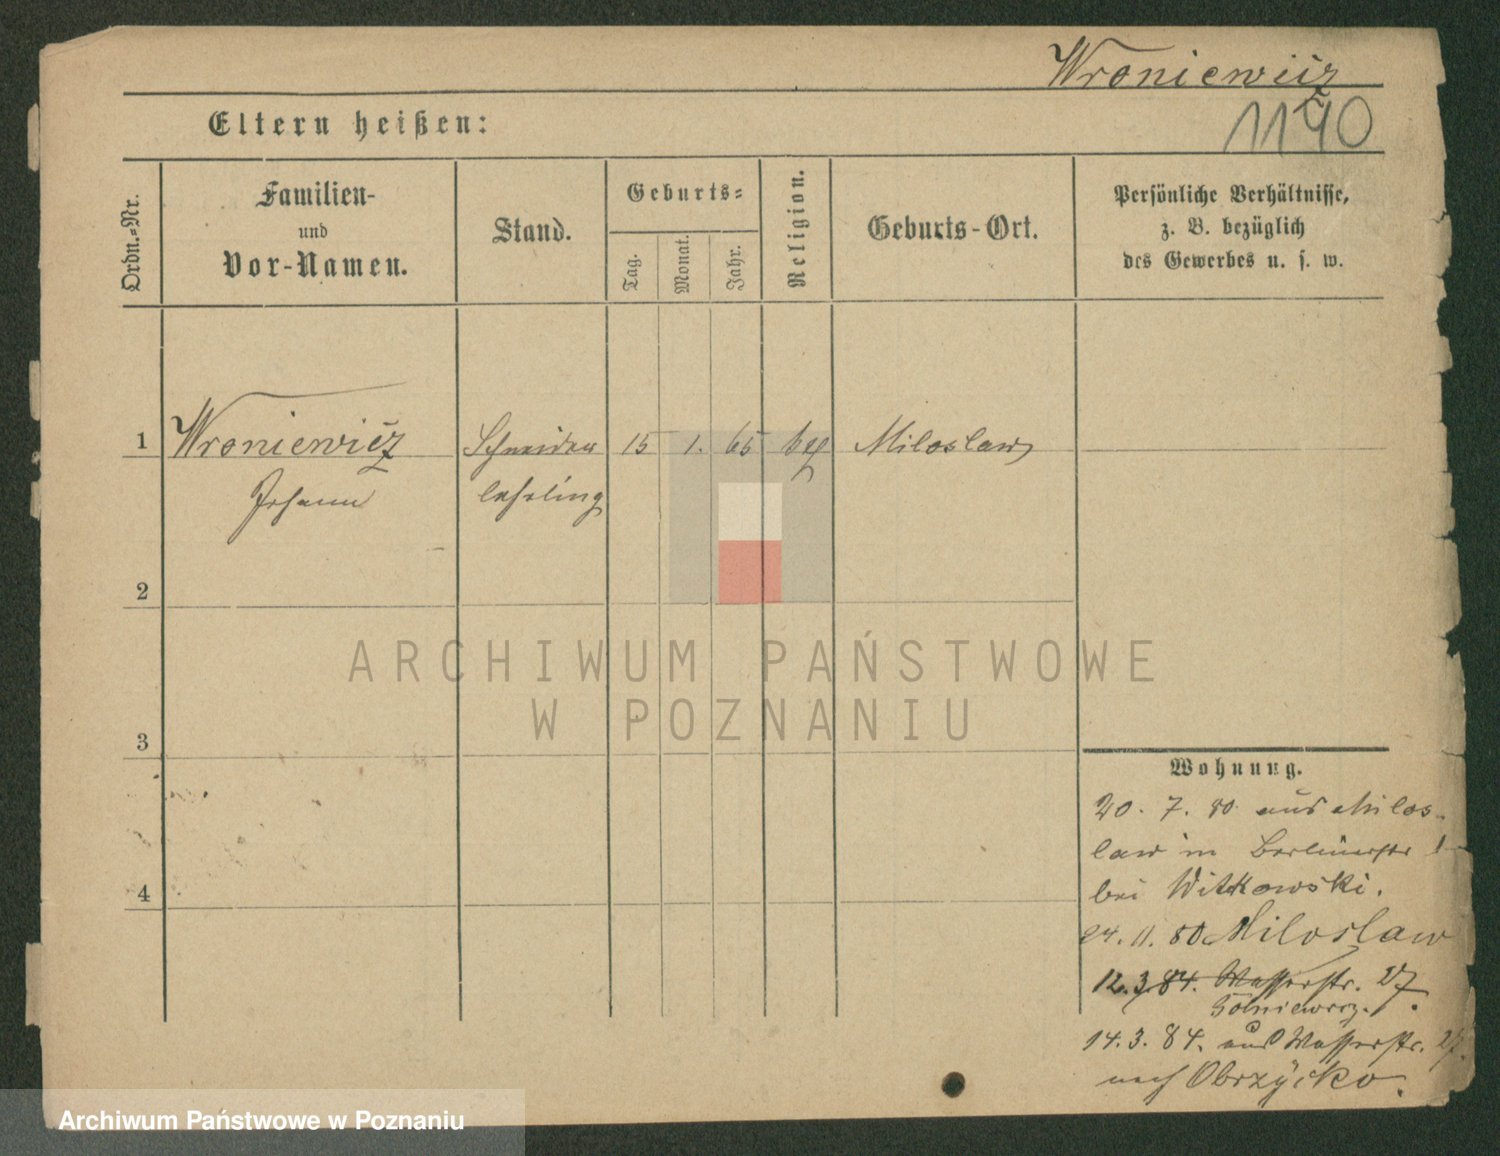 Wroniewicz
1140
Eltern heißen:
Ordn.-Nr.
Familien-
und
Vor-Namen.
Stand.
Geburts-
Tag.
Monat.
Jahr.
Religion.
Geburts-Ort.
Persönliche Verhältnisse,
z. B. bezüglich
des Gewerbes u. s. w.
1 Wroniewicz Schneider 15 1. 65 Miloslaw
Johann lehrling
2
3
4
ARCHIWUM PAŃSTWOWE
W POZNANIU
Wohnung.
20. 7. 80 aus Milos-
law in Berlinerstr
bei Witkowski.
24. 11. 80 Miloslaw
12. 3. 84. Wasserstr. 27
14. 3. 84. aus Wasserstr. 27.
nach Obrzycko.
Archiwum Państwowe w Poznaniu